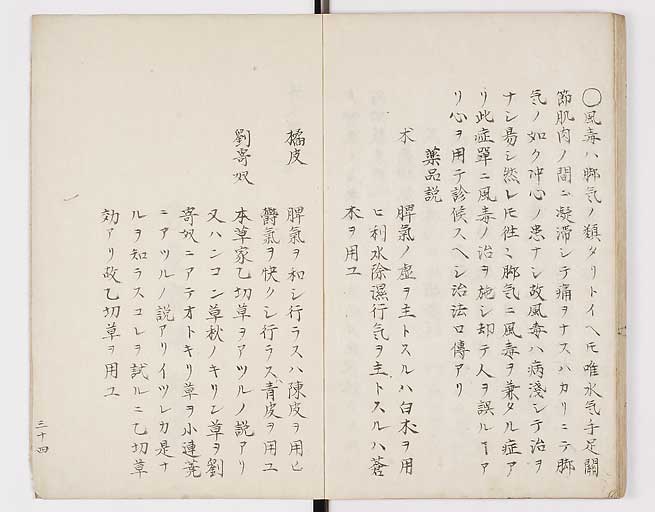 〇風毒ハ脚気ノ類タリトイヘ𪜈唯水気手足關
節肌肉ノ間ニ凝滞シテ痛ヲナスハカリニテ脚
気ノ如ク冲心ノ患ナシ故風毒ハ病淺シテ治ヲ
ナシ易シ然レ𪜈徃〻脚気ニ風毒ヲ兼タル症ア
リ此症單ニ風毒ノ治ヲ施シ却テ人ヲ誤ルヿア
リ心ヲ用テ診候スヘシ治法口傳アリ
薬品説
朮 脾氣ノ虚ヲ主トスルハ白朮ヲ用
ヒ利水除濕行気ヲ主トスルハ蒼
朮ヲ用ユ
橘皮 脾氣ヲ和シ行ラスハ陳皮ヲ用ヒ
欝氣ヲ快クシ行ラス青皮ヲ用ユ
劉寄奴 本草家乙切草ヲアツルノ説アリ
又ハンコン草秋ノキリン草ヲ劉
寄奴ニアテオトキリ草ヲ小連翹
ニアツルノ説アリイツレカ是ナ
ルヲ知ラスコレヲ試ルニ乙切草
効アリ故乙切草ヲ用ユ
三十四